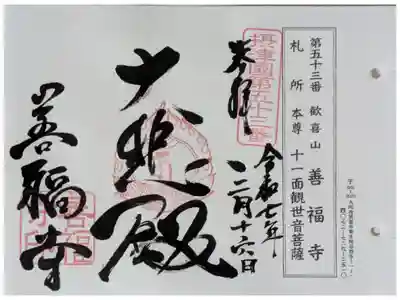 第五十三番 歓喜山 善福寺
札所 本尊 十一面観世音菩薩
摂津國第五十三番
奉拝
令和七年
十二月十六日
大悲殿
善福寺